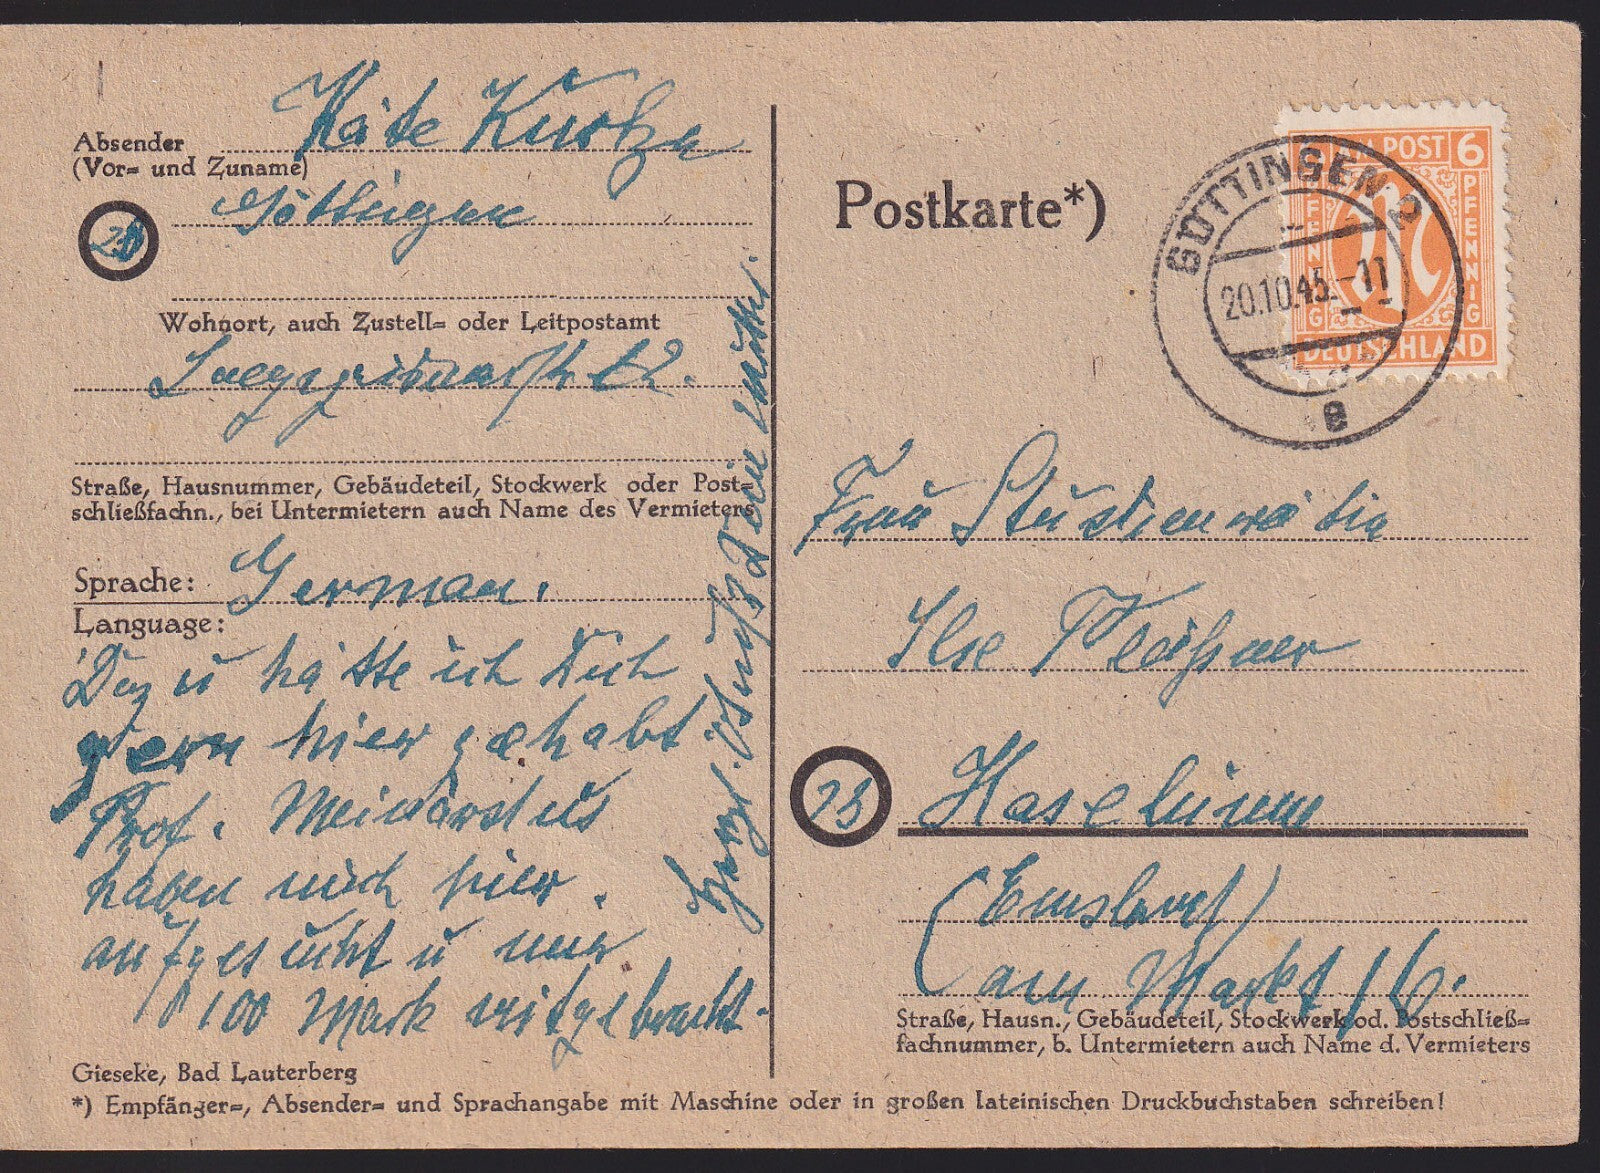 Absender
(Vor= und Zuname)
Käte
Göttingen
Wohnort, auch Zustell= oder Leitpostamt
Straße, Hausnummer, Gebäudeteil, Stockwerk oder Post=
schließfachn., bei Untermietern auch Name des Vermieters
Sprache: German.
Language:
Dazu hätte ich Dich
gern hier gehabt
Prof.
haben mich hier
aufgesucht u mir
100 Mark mitgebracht.
Herzl. Gruß Dein Mutti
Gieseke, Bad Lauterberg
*) Empfänger=, Absender= und Sprachangabe mit Maschine oder in großen lateinischen Druckbuchstaben schreiben!
Postkarte*)
GÖTTINGEN 2
20.10.45.-11
e
AM POST 6
PFENNIG
PFENNIG
DEUTSCHLAND
Frau Studienrätin
Ilse
23 Haselünne
(Emsland)
am Markt 16.
Straße, Hausn., Gebäudeteil, Stockwerk od. Postschließ=
fachnummer, b. Untermietern auch Name d. Vermieters